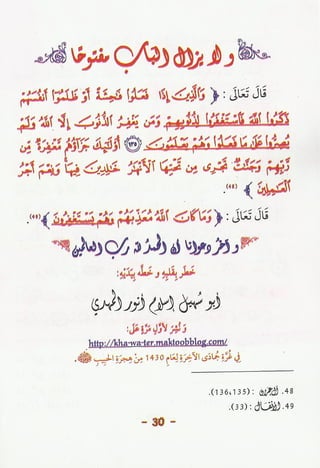 ولا يزال الباب مفتوحًا
قَالَ تَعَالَى : ﴿ وَالَّذِينَ إِذَا فَعَلُوا فَاحِشَةً أَوْ ظَلَمُوا أَنْفُسَهُمْ
ذَكَرُوا اللَّهَ فَاسْتَغْفَرُوا لِذُنُوبِهِمْ وَمَن يَغْفِرُ الذُّنُوبَ إِلَّا اللَّهُ وَلَمْ
يُصِرُّوا عَلَى مَا فَعَلُوا وَهُمْ يَعْلَمُونَ ۝١٣٥ أُولَٰئِكَ جَزَاؤُهُم مَّغْفِرَةٌ مِّن
رَّبِّهِمْ وَجَنَّاتٌ تَجْرِي مِن تَحْتِهَا الْأَنْهَارُ خَالِدِينَ فِيهَا وَنِعْمَ أَجْرُ
الْعَامِلِينَ ﴾ (48).
قَالَ تَعَالَى : ﴿ وَمَا كَانَ اللَّهُ مُعَذِّبَهُمْ وَهُمْ يَسْتَغْفِرُونَ ﴾ (49).
وآخر دعوانا أن الحمد لله رب العالمين
خَطَر بِقَلبِهِ وَ خَطَّه بِيَدَيْهِ:
أبو سهيل إسلام أنور المهدي
وَ نُشِرَ لأَوَّلِ مَرَّةٍ عَلَى:
http://kha-wa-ter.maktoobblog.com/
فِي غُرَّةِ جُمَادَى الآخِرَةِ لِعَامِ 1430 مِنْ هِجْرَةِ الحَبِيبِ ﷺ.
48. آل عمران : (136،135).
49. الأنفال : (33).
- 30 -